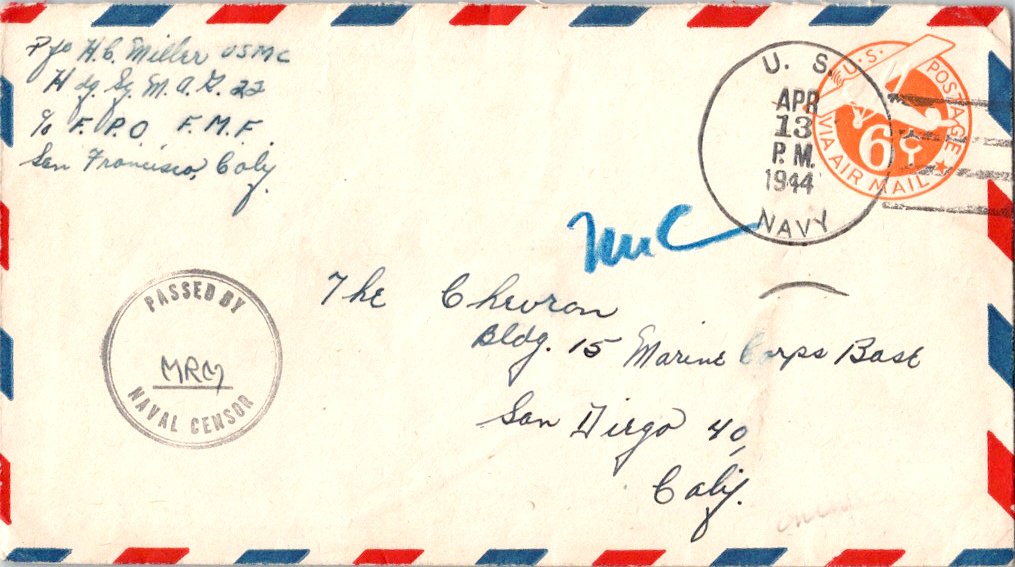 Pfc H.C. Miller USMC
Hdq. Sq. M.A.G. 22
c/o F.P.O F.M.F
San Francisco, Calif
U. S.
APR
13
P.M.
1944
NAVY
U.S. POSTAGE
6¢
VIA AIR MAIL
PASSED BY
MRM
NAVAL CENSOR
The Chevron
Bldg. 15 Marine Corps Base
San Diego 40,
Calif.